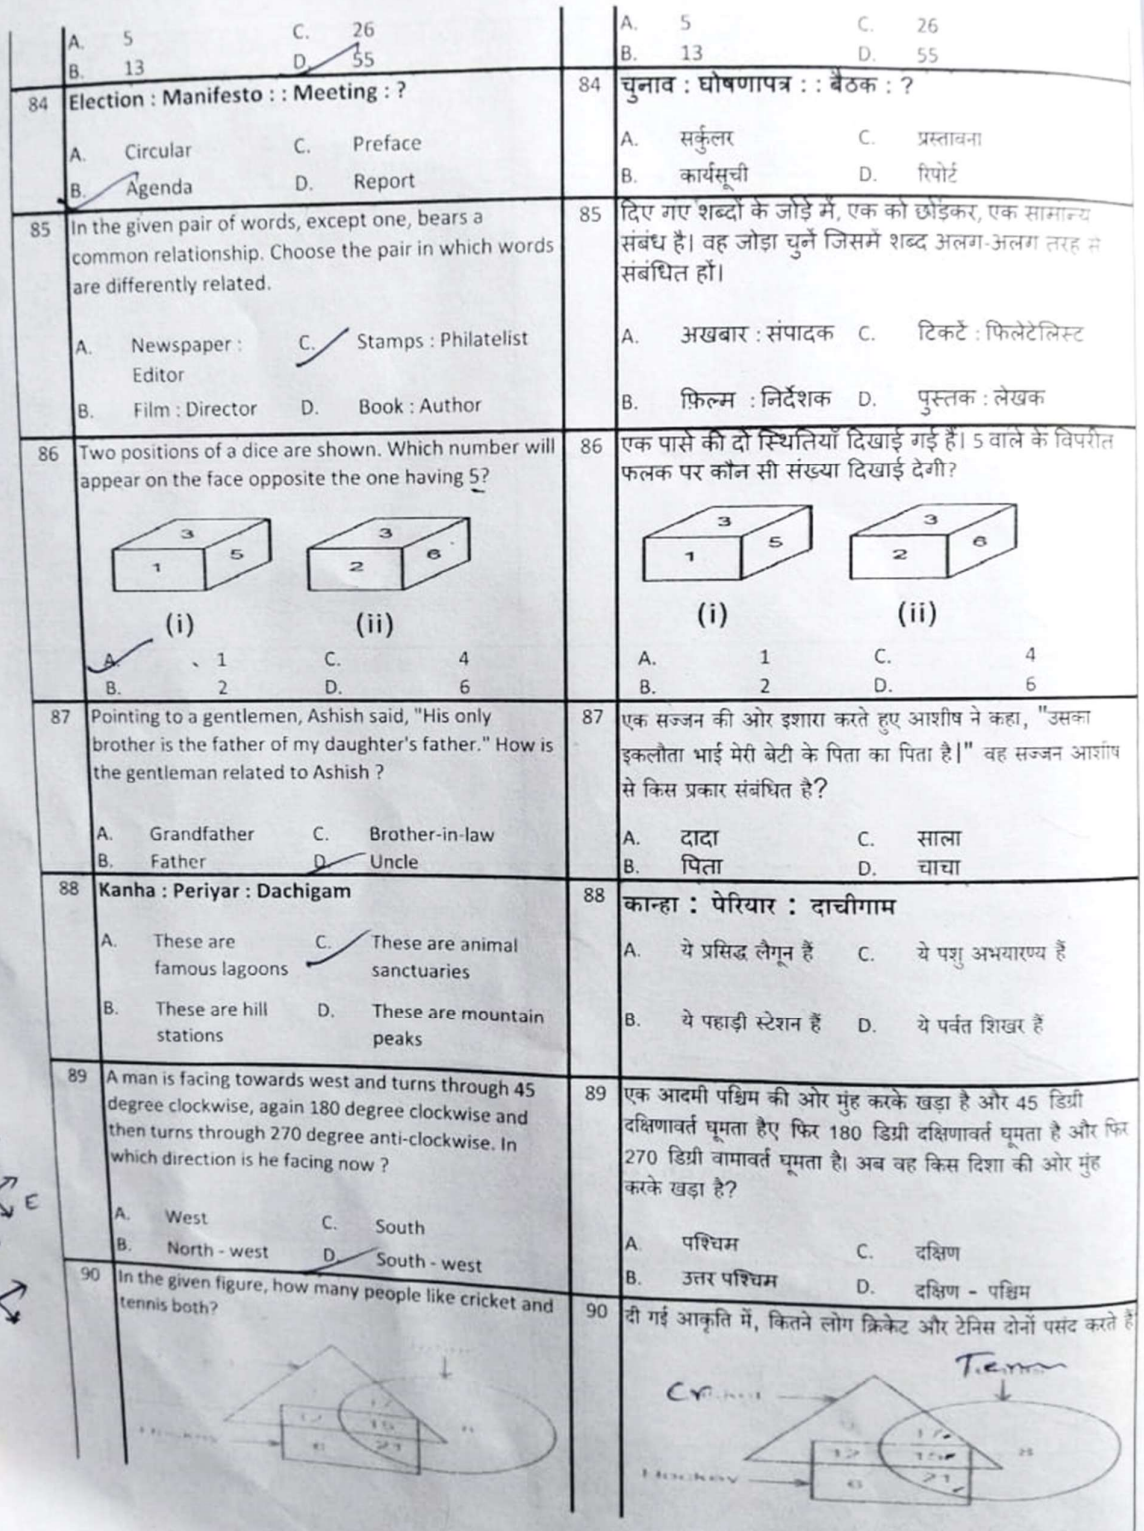 A. 5 C. 26
B. 13 D. 55
84 Election : Manifesto : : Meeting : ?
A. Circular C. Preface
B. Agenda D. Report
85 In the given pair of words, except one, bears a
common relationship. Choose the pair in which words
are differently related.
A. Newspaper : C. Stamps : Philatelist
Editor
B. Film : Director D. Book : Author
86 Two positions of a dice are shown. Which number will
appear on the face opposite the one having 5?
3 3
1 5 2 6
(i) (ii)
A. 1 C. 4
B. 2 D. 6
87 Pointing to a gentlemen, Ashish said, "His only
brother is the father of my daughter's father." How is
the gentleman related to Ashish ?
A. Grandfather C. Brother-in-law
B. Father D. Uncle
88 Kanha : Periyar : Dachigam
A. These are C. These are animal
famous lagoons sanctuaries
B. These are hill D. These are mountain
stations peaks
89 A man is facing towards west and turns through 45
degree clockwise, again 180 degree clockwise and
then turns through 270 degree anti-clockwise. In
which direction is he facing now ?
E
A. West C. South
B. North - west D. South - west
90 In the given figure, how many people like cricket and
tennis both?
17
12 15
6 21
A. 5 C. 26
B. 13 D. 55
84 चुनाव : घोषणापत्र : : बैठक : ?
A. सर्कुलर C. प्रस्तावना
B. कार्यसूची D. रिपोर्ट
85 दिए गए शब्दों के जोड़े में, एक को छोड़कर, एक सामान्य
संबंध है। वह जोड़ा चुनें जिसमें शब्द अलग-अलग तरह से
संबंधित हों।
A. अखबार : संपादक C. टिकटें : फिलेटेलिस्ट
B. फ़िल्म : निर्देशक D. पुस्तक : लेखक
86 एक पासे की दो स्थितियाँ दिखाई गई हैं। 5 वाले के विपरीत
फलक पर कौन सी संख्या दिखाई देगी?
3 3
1 5 2 6
(i) (ii)
A. 1 C. 4
B. 2 D. 6
87 एक सज्जन की ओर इशारा करते हुए आशीष ने कहा, "उसका
इकलौता भाई मेरी बेटी के पिता का पिता है|" वह सज्जन आशीष
से किस प्रकार संबंधित है?
A. दादा C. साला
B. पिता D. चाचा
88 कान्हा : पेरियार : दाचीगाम
A. ये प्रसिद्ध लैगून हैं C. ये पशु अभयारण्य हैं
B. ये पहाड़ी स्टेशन हैं D. ये पर्वत शिखर हैं
89 एक आदमी पश्चिम की ओर मुंह करके खड़ा है और 45 डिग्री
दक्षिणावर्त घूमता हैए फिर 180 डिग्री दक्षिणावर्त घूमता है और फिर
270 डिग्री वामावर्त घूमता है। अब वह किस दिशा की ओर मुंह
करके खड़ा है?
A. पश्चिम C. दक्षिण
B. उत्तर पश्चिम D. दक्षिण - पश्चिम
90 दी गई आकृति में, कितने लोग क्रिकेट और टेनिस दोनों पसंद करते हैं
17
12 15
Hockey 6 21